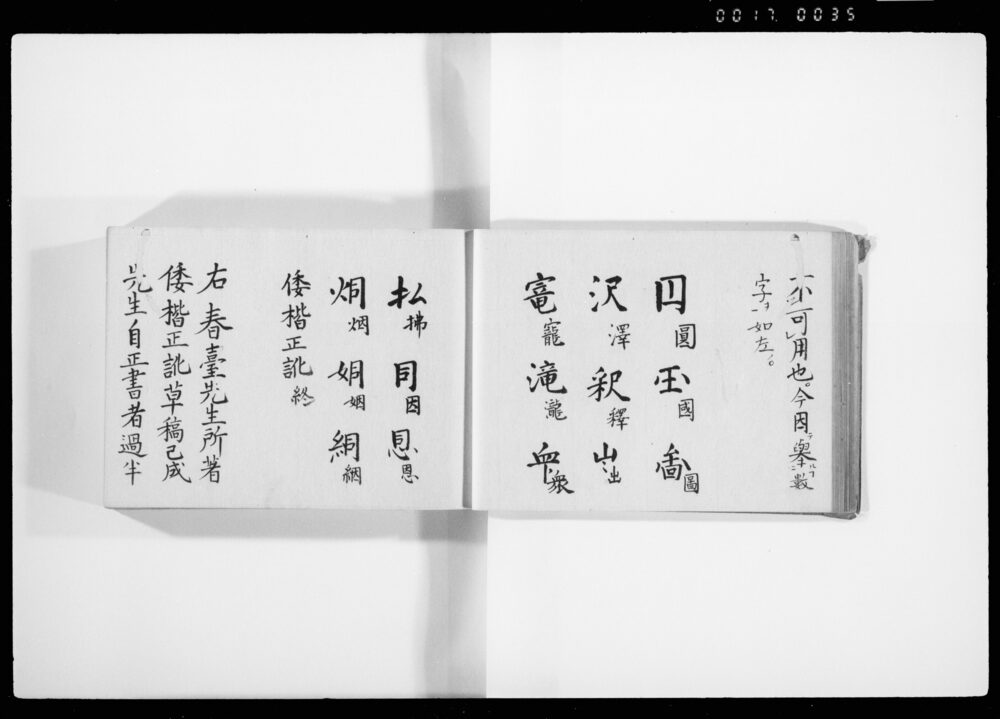 0017 0035
不可用也。今因舉數
字ヲ如左。
囙圓 囯國 啚圖
沢澤 釈釋 出
竃竈 滝瀧 衆
払拂 同因 恩
烔烟 姛姻 絧絪
倭楷正訛終
右春臺先生所著
倭楷正訛草稿已成
先生自正書者過半